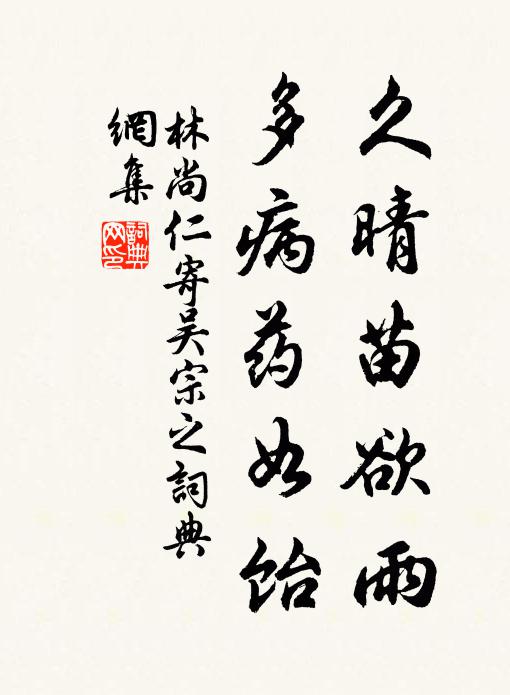 久晴苗欲雨
多病药如饴
林尚仁寄吴宗之詞典
網集
詞典
网印